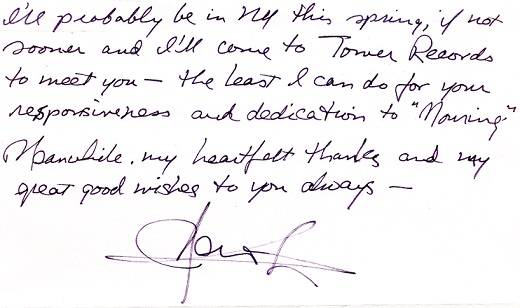 I'll probably be in NY this spring, if not
sooner and I'll come to Tower Records
to meet you — the least I can do for your
responsiveness and dedication to "Mourning"
Meanwhile. my heartfelt thanks and my
great good wishes to you always —